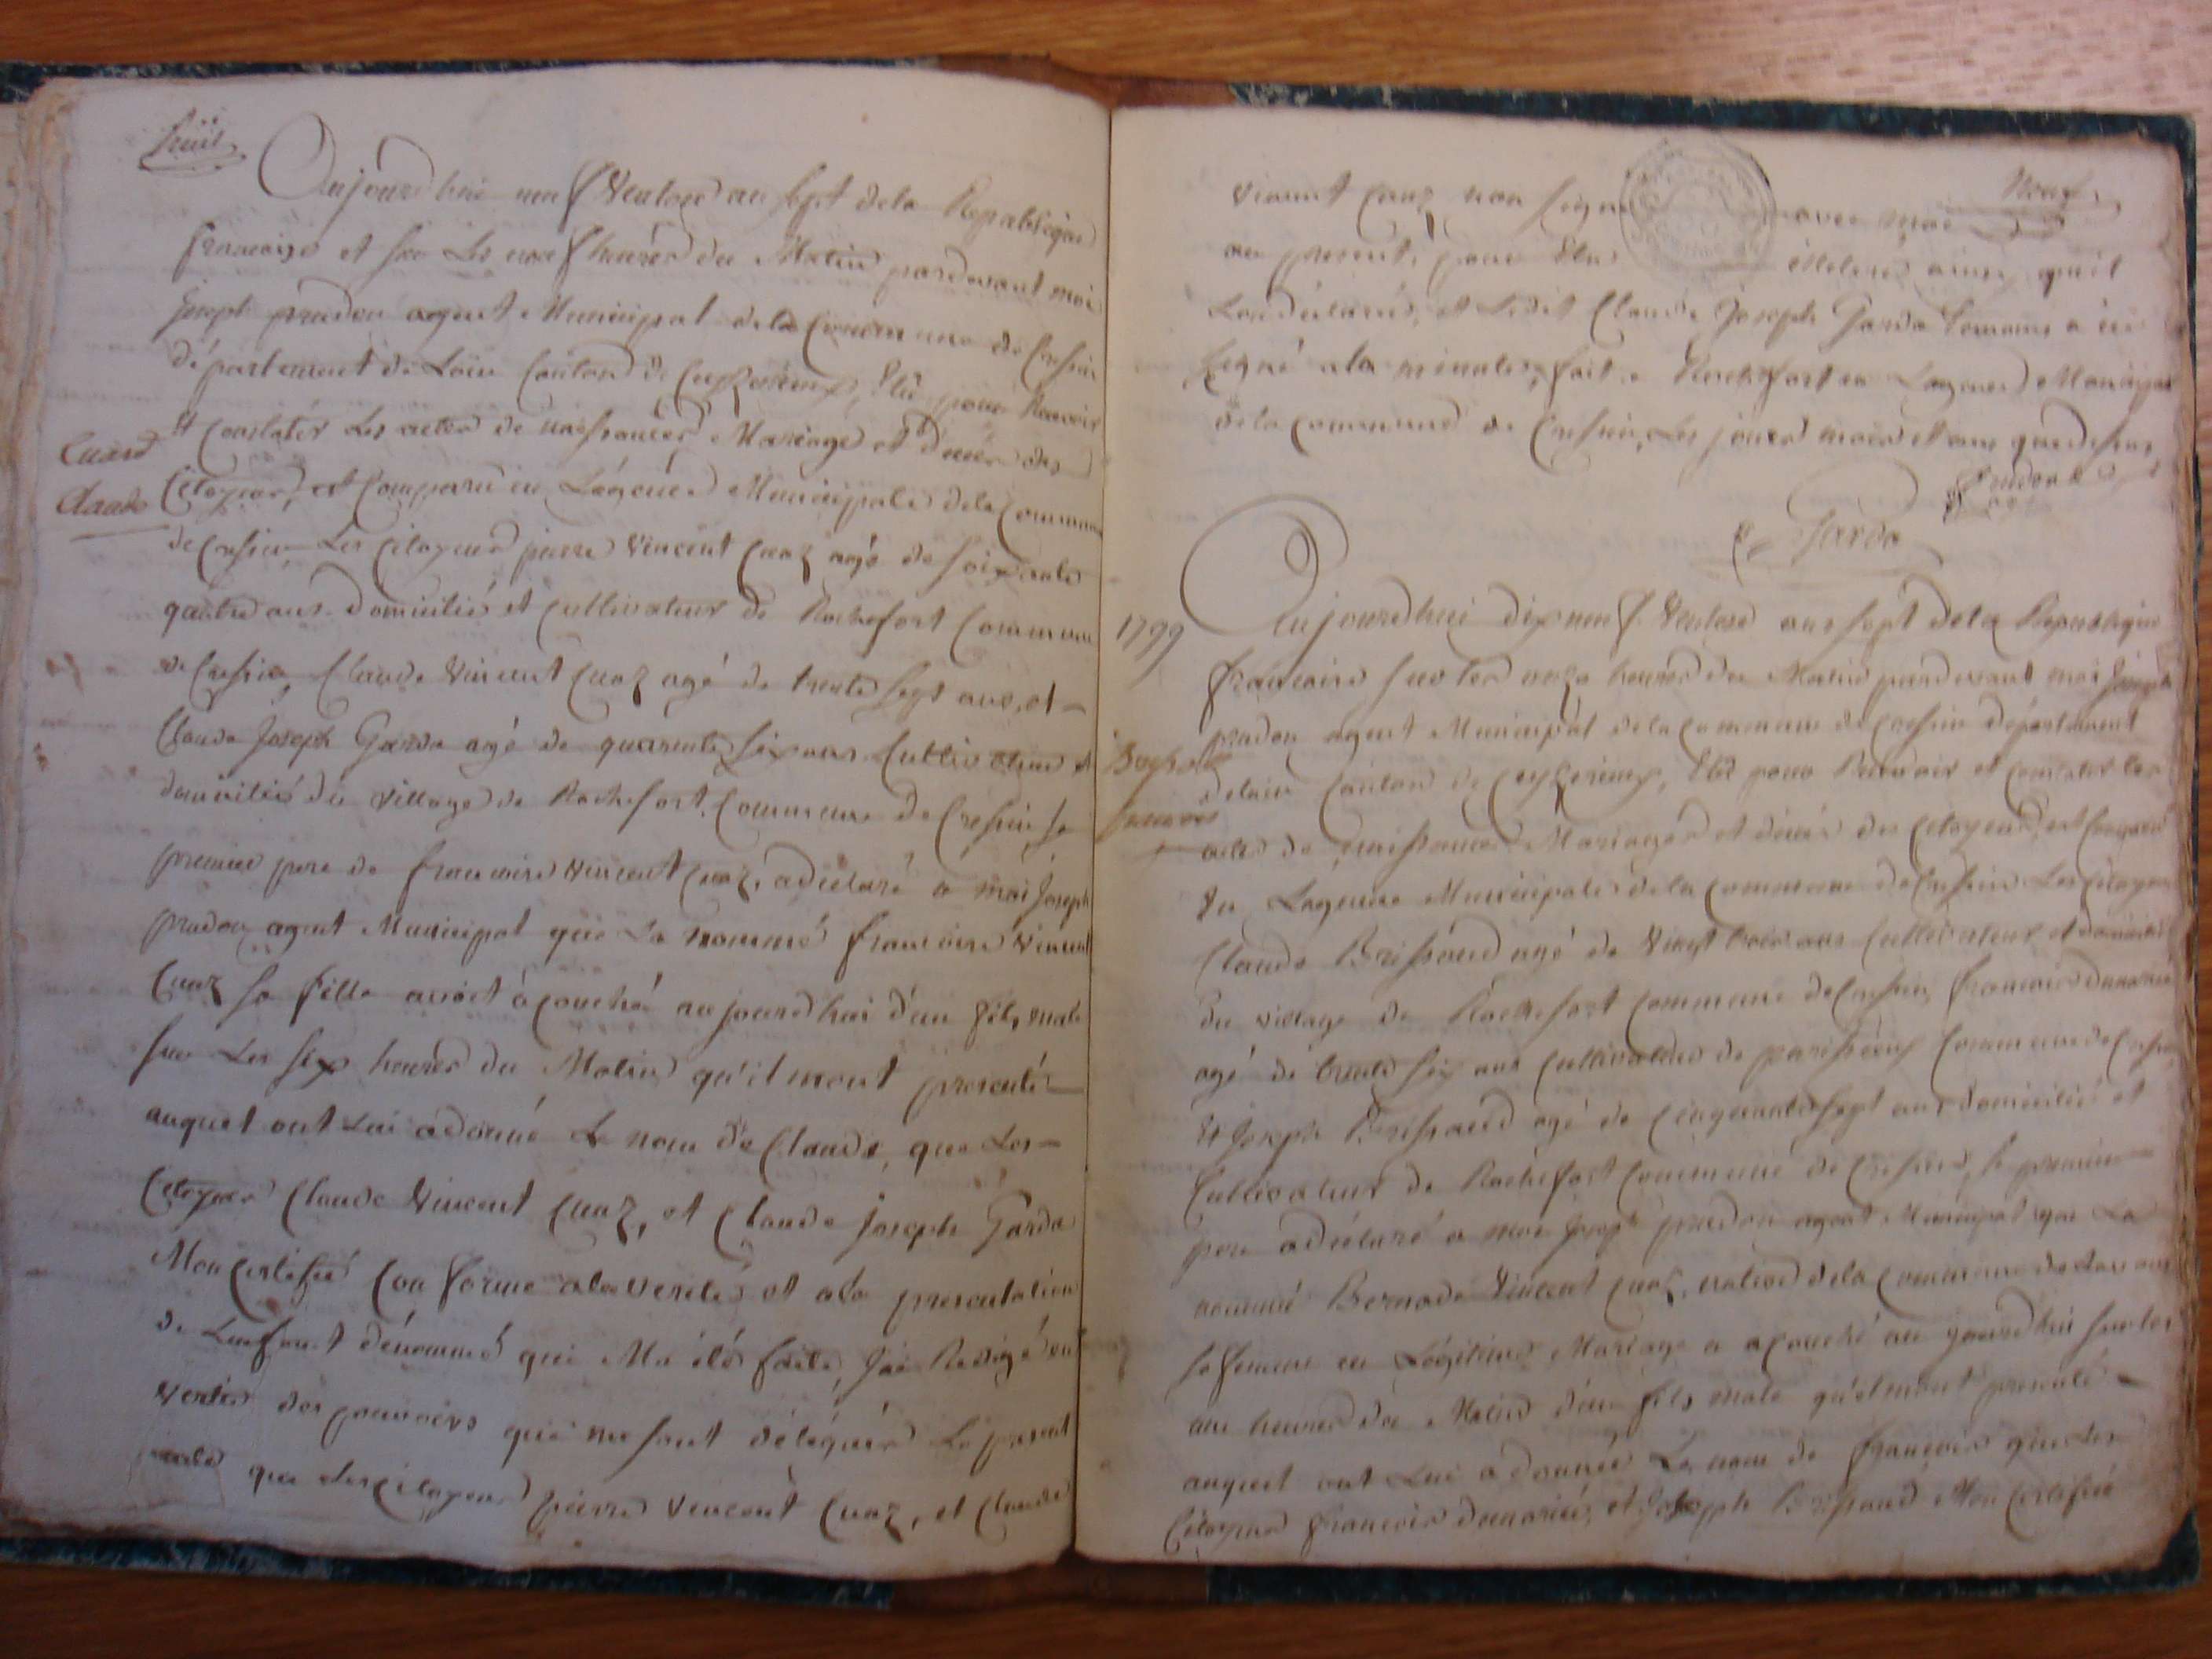 huit
Aujourd'hui neuf Ventose an sept dela Republique
francoise et sur Les neuf heures du Matin pardevant moi
Joseph prudon agent Municipal dela Commune de Cressin
département de Lain Canton de Ceyzerieux, Elu pour Recevoir
Et Constater Les actes de naissances Mariage et deces des
Cuaz
Claude
Citoyens, est Comparu en Lagence Municipale dela Commune
de Cressin Les Citoyens pierre Vincent Cuaz agé de soixante
quatre ans domicilié et Cultivateur de Rochefort Commune
de Cressin, Claude Vincent Cuaz agé de trente sept ans, et
Claude Joseph Garda agé de quarante six ans Cultivateur et
domicilié du village de Rochefort Commune de Cressin, le
premier pere de francoise Vincent Cuaz, adéclaré a moi Joseph
prudon agent Municipal que La nommé francoise Vincent
Cuaz sa fille avoit acouché aujourdhui d'un fils male
sur Les six heures du Matin qu'il mont presenté
auquel ont Lui a donné Le nom de Claude, que Les
Citoyens Claude Vincent Cuaz, et Claude Joseph Garda
Mon Certifié Conforme ala verité et ala presentation
de Lenfant dénommé qui Ma été faite, Jai Redigé en
Vertu des pouvoirs qui me sont délégués Le present
acte que Les Citoyens pierre Vincent Cuaz, et Claude
Neuf
Vincent Cuaz non signé avec moi
au present, pour illeteré ainsi quil
Lon déclarés, et Ledit Claude Joseph Garda temoins a
signé ala minute, fait a Rochefort en Lagence Municipal
dela Commune de Cressin, Les jour mois et an que dessus
Prudon
Garda
1799
Aujourdhui dix neuf Ventose an sept dela Republique
francoise sur les onze heures du Matin pardevant moi Joseph
prudon agent Municipal dela Commune de Cressin département
delain Canton de Ceyzerieux, Elu pour Recevoir et Constater les
francois
actes de naissances Mariages et deces des Citoyens, est Comparu
En Lagence Municipale dela Commune de Cressin Les Citoyens
Claude Brissaud agé de Vingt trois ans Cultivateur et domicilié
du village de Rochefort Commune de Cressin, francois
agé de trente six ans Cultivateur de parissieux Commune de Cressin
Et Joseph Brissaud agé de Cinquante sept ans domicilié et
Cultivateur de Rochefort Commune de Cressin, le premier
pere adéclaré a moi Joseph prudon agent Municipal que La
nommé Bernarde Vincent Cuaz, native dela Commune de
sa femme en Légitime Mariage a acouché aujourdhui sur les
heures du Matin d'un fils male qu'il mont presenté
auquel ont Lui a donné Le nom de francois que Les
Citoyens francois et Joseph Brissaud Mon Certifié